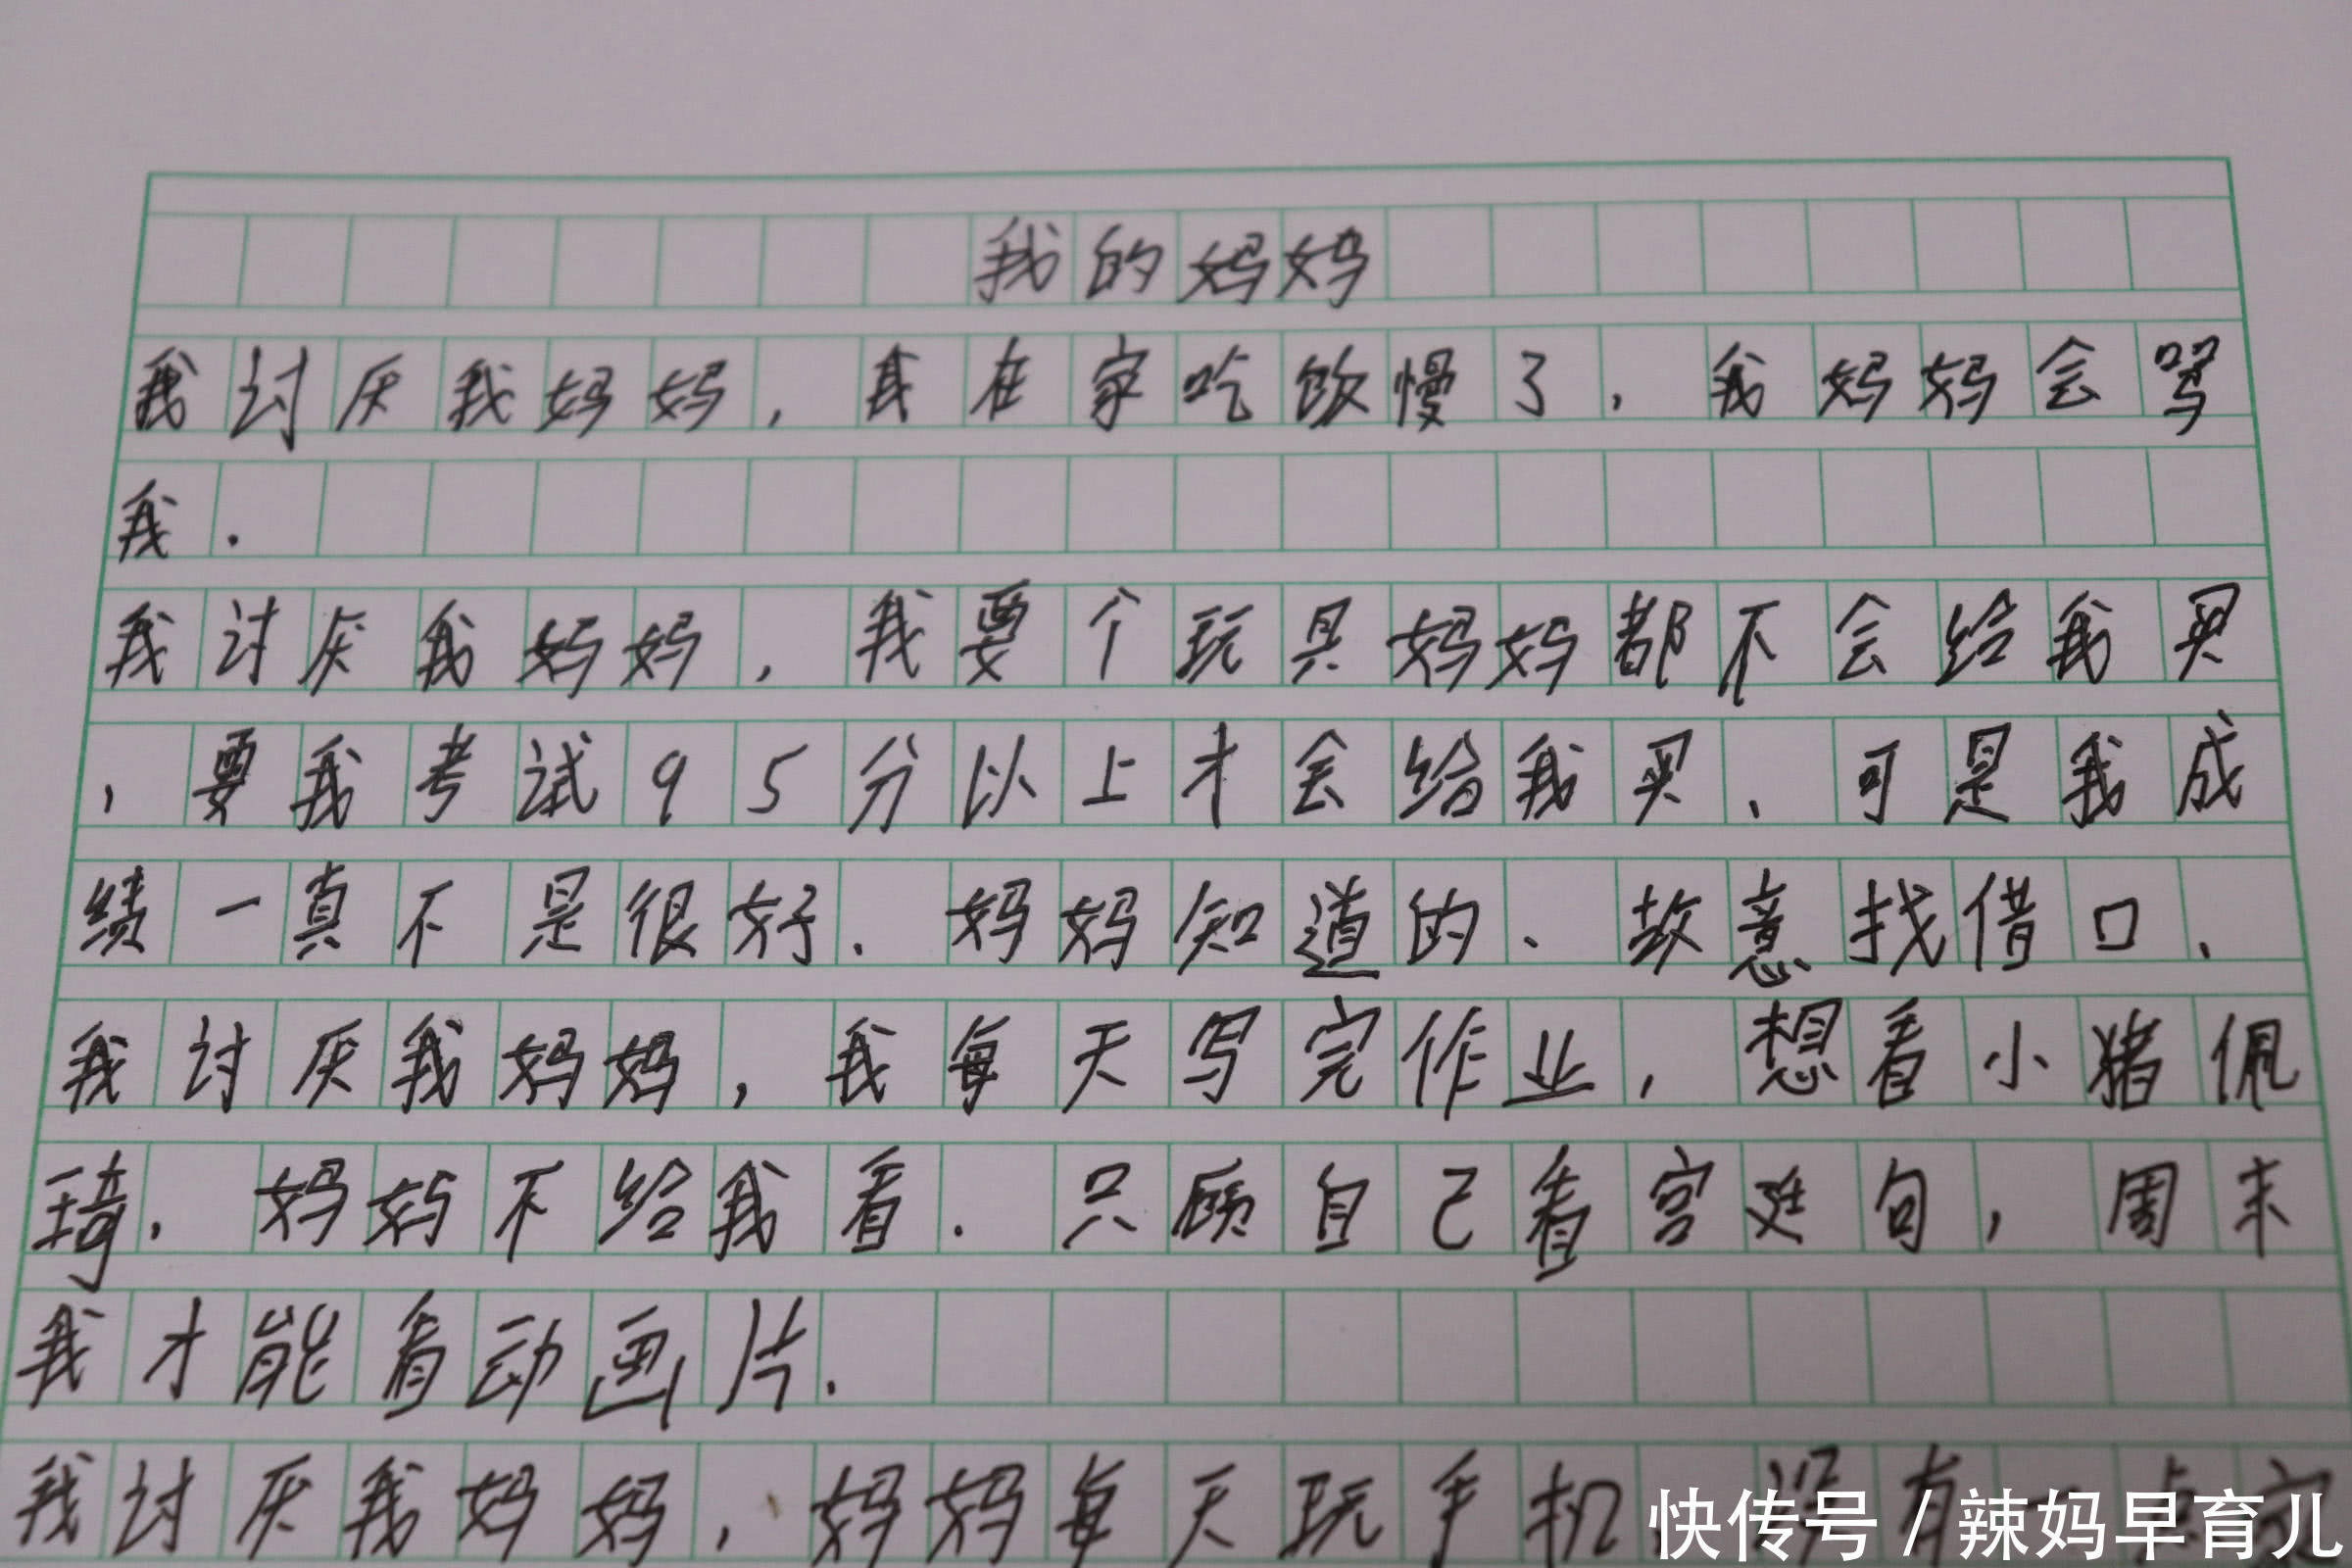 我的妈妈
我讨厌我妈妈，我在家吃饭慢了，我妈妈会骂
我．
我讨厌我妈妈，我要个玩具妈妈都不会给我买
，要我考试95分以上才会给我买、可是我成
绩一真不是很好．妈妈知道的、故意找借口．
我讨厌我妈妈，我每天写完作业，想看小猪佩
琦．妈妈不给我看．只顾自己看宫廷句，周末
我才能看动画片．
我讨厌我妈妈，妈妈每天玩手机 没有
快传号 / 辣妈早育儿